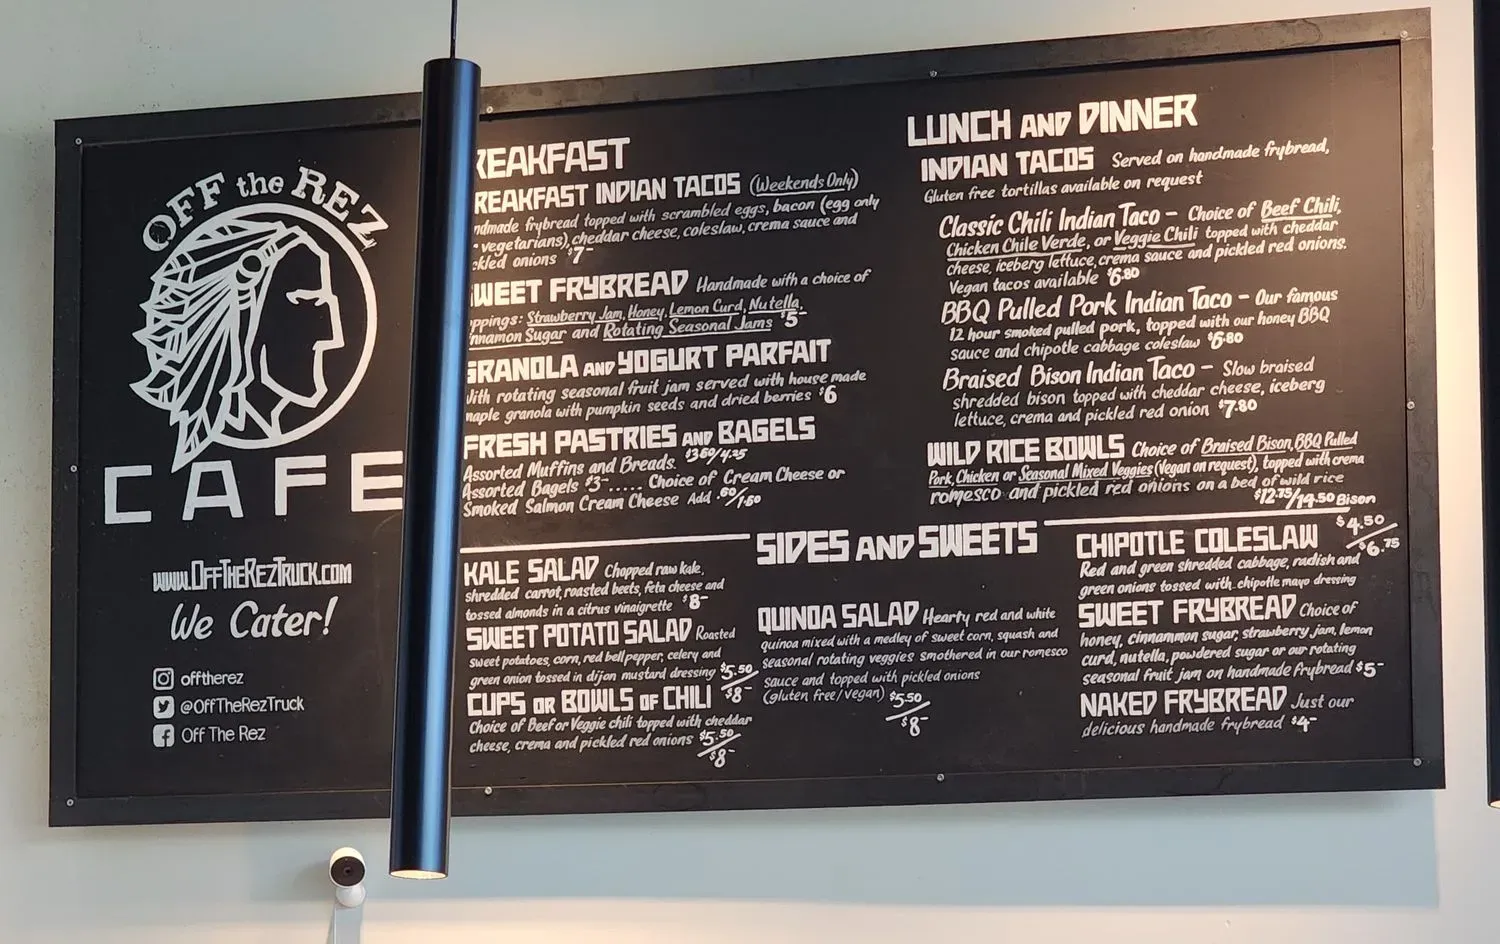 OFF the REZ
CAFE
www.OffTheRezTruck.com
We Cater!
offtherez
@OffTheRezTruck
Off The Rez
REAKFAST
REAKFAST INDIAN TACOS (Weekends Only)
ndmade frybread topped with scrambled eggs, bacon (egg only
vegetarians), cheddar cheese, coleslaw, crema sauce and
ckled onions $7-
WEET FRYBREAD Handmade with a choice of
ppings: Strawberry Jam, Honey, Lemon Curd, Nutella,
nnamon Sugar and Rotating Seasonal Jams $5-
GRANOLA AND YOGURT PARFAIT
With rotating seasonal fruit jam served with house made
maple granola with pumpkin seeds and dried berries $6
FRESH PASTRIES AND BAGELS
Assorted Muffins and Breads. $3.60/4.25
Assorted Bagels $3-...... Choice of Cream Cheese or
Smoked Salmon Cream Cheese Add .60/1.60
LUNCH AND DINNER
INDIAN TACOS Served on handmade frybread,
Gluten free tortillas available on request
Classic Chili Indian Taco - Choice of Beef Chili,
Chicken Chile Verde, or Veggie Chili topped with cheddar
cheese, iceberg lettuce, crema sauce and pickled red onions.
Vegan tacos available $6.80
BBQ Pulled Pork Indian Taco - Our famous
12 hour smoked pulled pork, topped with our honey BBQ
sauce and chipotle cabbage coleslaw $6.80
Braised Bison Indian Taco - Slow braised
shredded bison topped with cheddar cheese, iceberg
lettuce, crema and pickled red onion $7.80
WILD RICE BOWLS Choice of Braised Bison, BBQ Pulled
Pork, Chicken or Seasonal Mixed Veggies (Vegan on request), topped with crema
romesco and pickled red onions on a bed of wild rice
$12.75/14.50 Bison
SIDES AND SWEETS
KALE SALAD Chopped raw kale,
shredded carrot, roasted beets, feta cheese and
tossed almonds in a citrus vinaigrette $8-
SWEET POTATO SALAD Roasted
sweet potatoes, corn, red bell pepper, celery and
green onion tossed in dijon mustard dressing $5.50
$8-
CUPS OR BOWLS OF CHILI
Choice of Beef or Veggie chili topped with cheddar
cheese, crema and pickled red onions $5.50
$8-
QUINOA SALAD Hearty red and white
quinoa mixed with a medley of sweet corn, squash and
seasonal rotating veggies smothered in our romesco
sauce and topped with pickled onions
(gluten free/vegan) $5.50
$8-
CHIPOTLE COLESLAW $4.50
$6.75
Red and green shredded cabbage, radish and
green onions tossed with chipotle mayo dressing
SWEET FRYBREAD Choice of
honey, cinnamon sugar, strawberry jam, lemon
curd, nutella, powdered sugar or our rotating
seasonal fruit jam on handmade frybread $5-
NAKED FRYBREAD Just our
delicious handmade frybread $4-